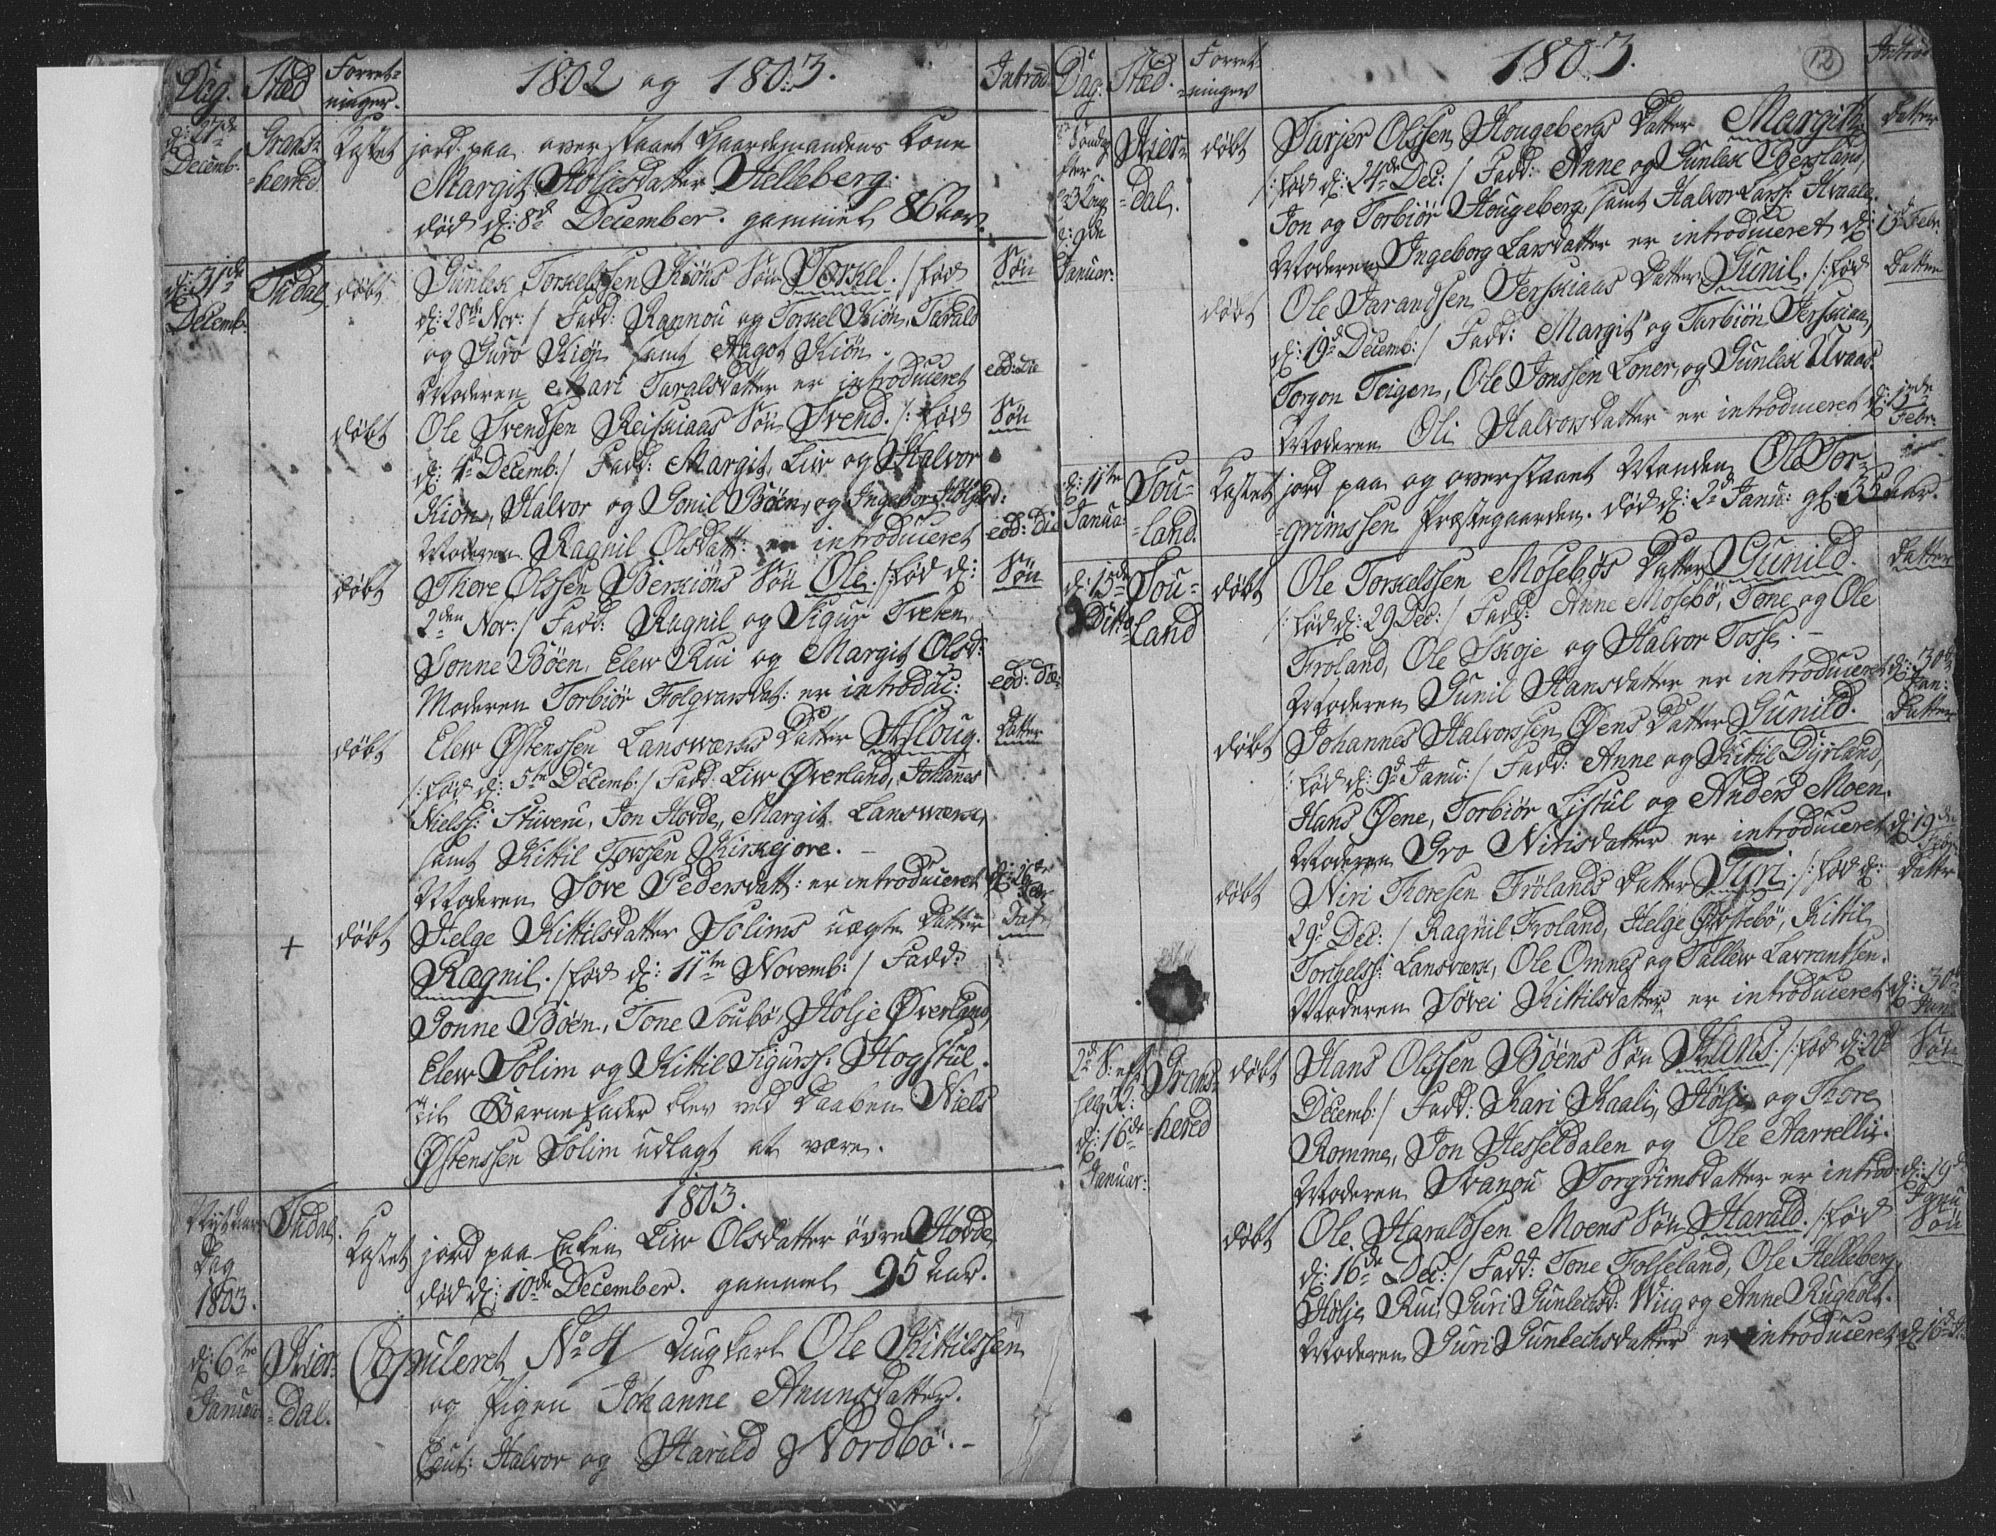 Dag.
Sted
Forret-
ninger.
1802 og 1803.
Introd
d: 27de
Decemb:
Grans-
-hered
Kastet
jord paa overstaaet Gaardemandens Kone
Margit Høljesdatter Helleberg.
død d: 8de December. gammel 86 aar.
d: 31de
Decemb:
Tudal
døbt
Gunlek Torkelssen Kiøns Søn Torkel. /: fød
d: 28de Nov: / Fadd: Rannou og Torkel Kiøn, Tarald
og Guro Kiøn samt Aagot Kiøn.
Moderen Mari Taraldsdatter er introduceret
Søn
eod: die
døbt
Ole Svendsen Reiskiaas Søn Svend. /: fød
d: 4de Decemb: / Fadd: Margit, Liv og Halvor
Kion, Halvor og Gonil Bøen, og Ingebor
Moderen Ragnil Olsdatt: er introduceret
Søn
eod: die
døbt
Thore Olssen Berkiøns Søn Ole. /: fød d:
2den Nov: / Fadd: Ragnil og Sigur Tveten,
Gonne Bøen, Elew Rui og Margit Olsd:
Moderen Torbiør Folqvarsdat: er introduc:
Søn
eod: die
døbt
Elew Østenssen Lanswærks Datter Asloug.
/: fød d: 5te Decemb: / Fadd: Liw Øverland, Johannes
Nielss: Stiveru, Jon Hovde, Margit Lanswærk,
samt Kittil Torssen Kirkejore.
Moderen Sove Pedersdatt: er introduceret
Datter
d: 16de
+
døbt
Helge Kittilsdatter Solims uægte Datter
Rægnil. /: fød d: 11te Novemb: / Fadd:
Gonne Bøen, Tone Soubø, Holje Øverland,
Elew Solim og Kittil Sigurss: Hogstul.
Til Barnefader blev ved Daaben Niels
Østenssen Solim udlagt at være.
Dat
1803.
Nytaars
Dag
1803.
Tudal.
Kastet
jord paa Enken Liw Olsdatter øvre Hovde
død d: 10de December. gammel 95 aar.
d: 6te
Januar
Hier-
-dal.
Copuleret No 4 / Ungkarl Ole Kittilssen
og Pigen Johanne Amunsdatter.
Caut: Halvor og Harald Nordbø.
Dag.
Sted.
Forret
-ninger
1803.
12
Introd
Søndag
efter
3 Kong
d: 9de
Januar:
Hier-
-dal.
døbt
Tarjer Olssen Hougebergs Datter Margit
/: fød d: 24de Dec: / Fadd: Anne og Gunlek Bergland,
Jon og Torbiør Hougeberg, samt Halvor Larss: Kvaale.
Moderen Ingeborg Larsdatter er introduceret d:
Datter
Febr.
døbt
Ole Tarandsen Jerskiaas Datter Gunil. /: fød
d: 19de Decemb: / Fadd: Margit og Tarbiøn Jerskiaas,
Torgon Teigen, Ole Jonssen Loner, og Gunlek Uvaas.
Moderen Oli Halvorsdatter er introduceret d:
Datter
Febr.
d: 11te
Janua:
Sou-
-land.
Kastet
jord paa og overstaaet Manden Ole Tor-
-grimssen Præstegaarden. død d: 2de Janu: gl: 35 aar.
d: 15de
Ditto
Sou-
land
døbt
Ole Torkelssen Mosebøs Datter Gunild.
/: fød d: 29 Dec: / Fadd: Anne Mosebø, Tone og Ole
Froland, Ole Skoje og Halvor Tosse.
Moderen Gunil Hansdatter er introduceret
Datter
d: 30te
Jan:
døbt
Johannes Halvorssen Øens Datter Gunild.
/: fød d: 9de Janu: / Fadd: Anne og Kittil Dyrland,
Hans Øene, Torbiør Listul og Anders Moen.
Moderen Gro Nirisdatter er introduceret
Datter
d: 19de
døbt
Niri Thoresen Frølands Datter Turi. /: fød d:
29de Dec: / Ragnil Froland, Helge Mosebø, Kittil
Torkelss: Lansværk, Ole Omnes og Tallew Lavrantsen.
Moderen Søvei Kittilsdatter er introduceret
Datter
d: 30te
Jan:
2de S: eft
d: 16de
Januar:
Grans-
-hered
døbt
Hans Olssen Bøens Søn Hans. /: fød d: 20de
Decemb: / Fadd: Kari Kaali, Høljs og Thore
Romme, Jon Hesseldalen og Ole Harrellie.
Moderen Svanou Torgrimsdatter er introd:
Søn
d: 19de
døbt
Ole Haraldsen Moens Søn Harald. /: fød
d: 16de Dec: / Fadd: Tone Folseland, Ole Helleberg,
Holje Rui, Guri Gunlechsd: Wiig og Anne Rughola.
Moderen Guri Gunlechsdatter er introduceret
Søn
d: 16de